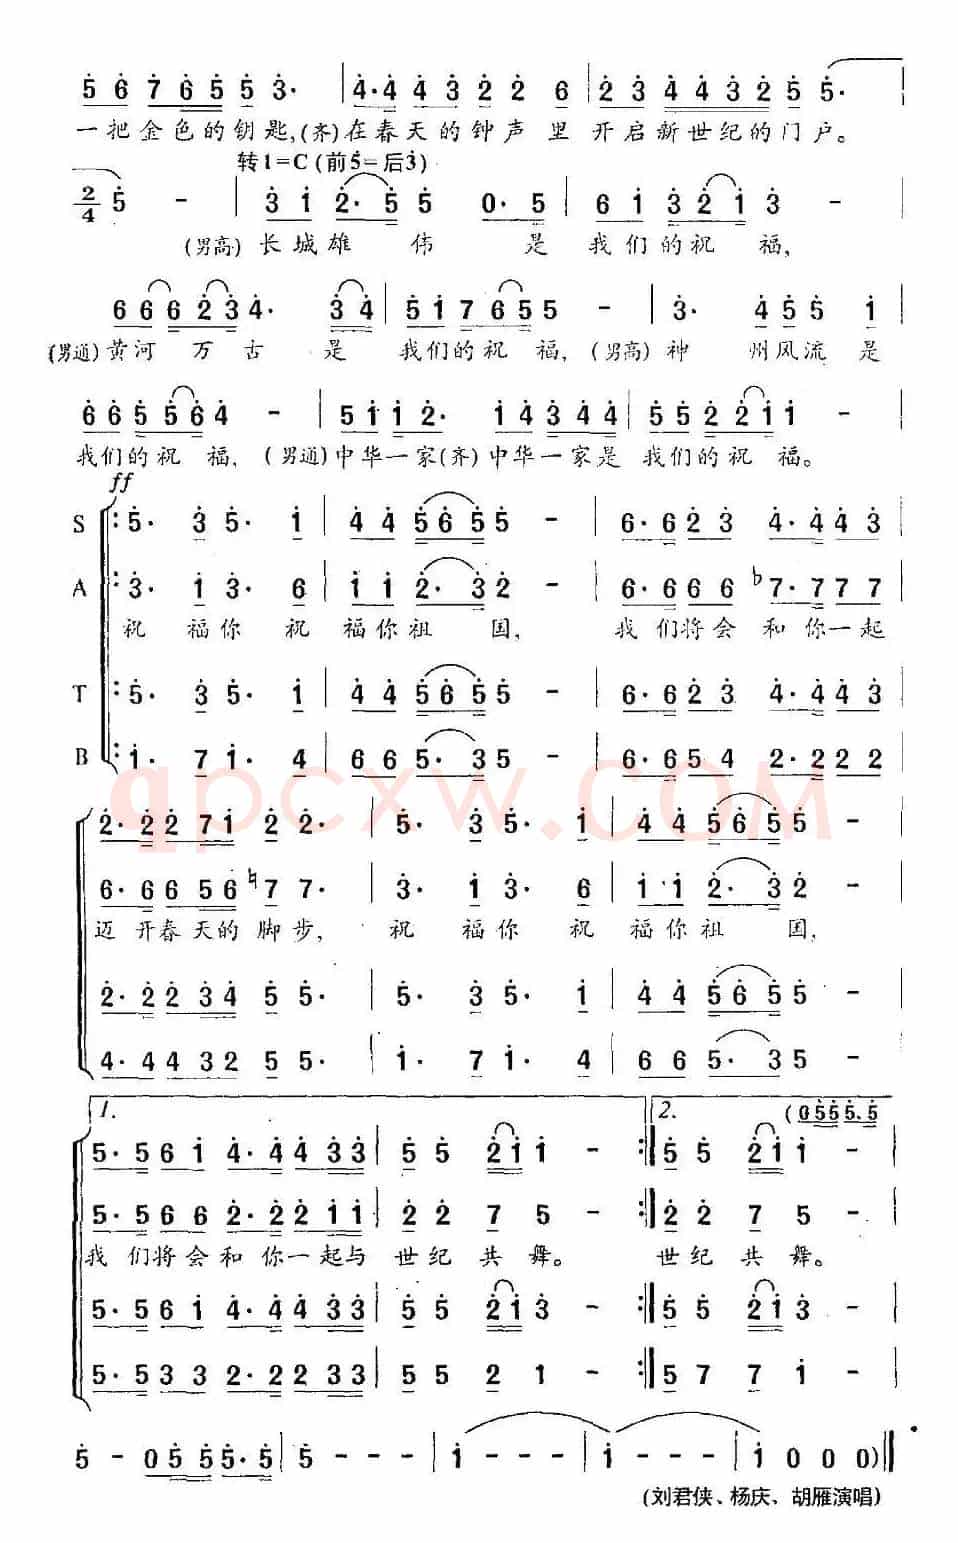 5 6 7 6 5 5 3· | 4·4 4 3 2 2 6 | 2 3 4 4 3 2 5 5· |
一把金色的钥匙,(齐)在春天的钟声里开启新世纪的门户。
转1=C(前5=后3)
2/4 5 - | 3 1 2· 5 5 0· 5 | 6 1 3 2 1 3 - |
(男高)长城雄伟是我们的祝福,
6 6 6 2 3 4· 3 4 | 5 1 7 6 5 5 - | 3· 4 5 5 1
(男通)黄河万古是我们的祝福,(男高)神州风流是
6 6 5 5 6 4 - | 5 1 1 2· 1 4 3 4 4 | 5 5 2 2 1 1 -
我们的祝福,(男通)中华一家(齐)中华一家是我们的祝福。
ff
S : 5· 3 5· 1 | 4 4 5 6 5 5 - | 6· 6 2 3 4· 4 4 3 |
A : 3· 1 3· 6 | 1 1 2· 3 2 - | 6· 6 6 6 ♭7· 7 7 7 |
祝福你祝福你祖国,我们将会和你一起
T : 5· 3 5· 1 | 4 4 5 6 5 5 - | 6· 6 2 3 4· 4 4 3 |
B : 1· 7 1· 4 | 6 6 5· 3 5 - | 6· 6 5 4 2· 2 2 2 |
qpcxw.COM
2· 2 2 7 1 2 2· | 5· 3 5· 1 | 4 4 5 6 5 5 - |
6· 6 6 5 6 ♮7 7· | 3· 1 3· 6 | 1 1 2· 3 2 - |
迈开春天的脚步,祝福你祝福你祖国,
2· 2 2 3 4 5 5· | 5· 3 5· 1 | 4 4 5 6 5 5 - |
4· 4 4 3 2 5 5· | 1· 7 1· 4 | 6 6 5· 3 5 - |
1. 2. (0 5 5 5. 5
5· 5 6 1 4· 4 4 3 3 | 5 5 2 1 1 - :| 5 5 2 1 1 - |
5· 5 6 6 2· 2 2 1 1 | 2 2 7 5 - :| 2 2 7 5 - |
我们将会和你一起与世纪共舞。世纪共舞。
5· 5 6 1 4· 4 4 3 3 | 5 5 2 1 3 - :| 5 5 2 1 3 - |
5· 5 3 3 2· 2 2 3 3 | 5 5 2 1 - :| 5 7 7 1 - |
5 - 0 5 5 5· 5 | 5 - - - | 1 - - - | 1 - - - | 1 0 0 0) ||
(刘君侠、杨庆、胡雁演唱)